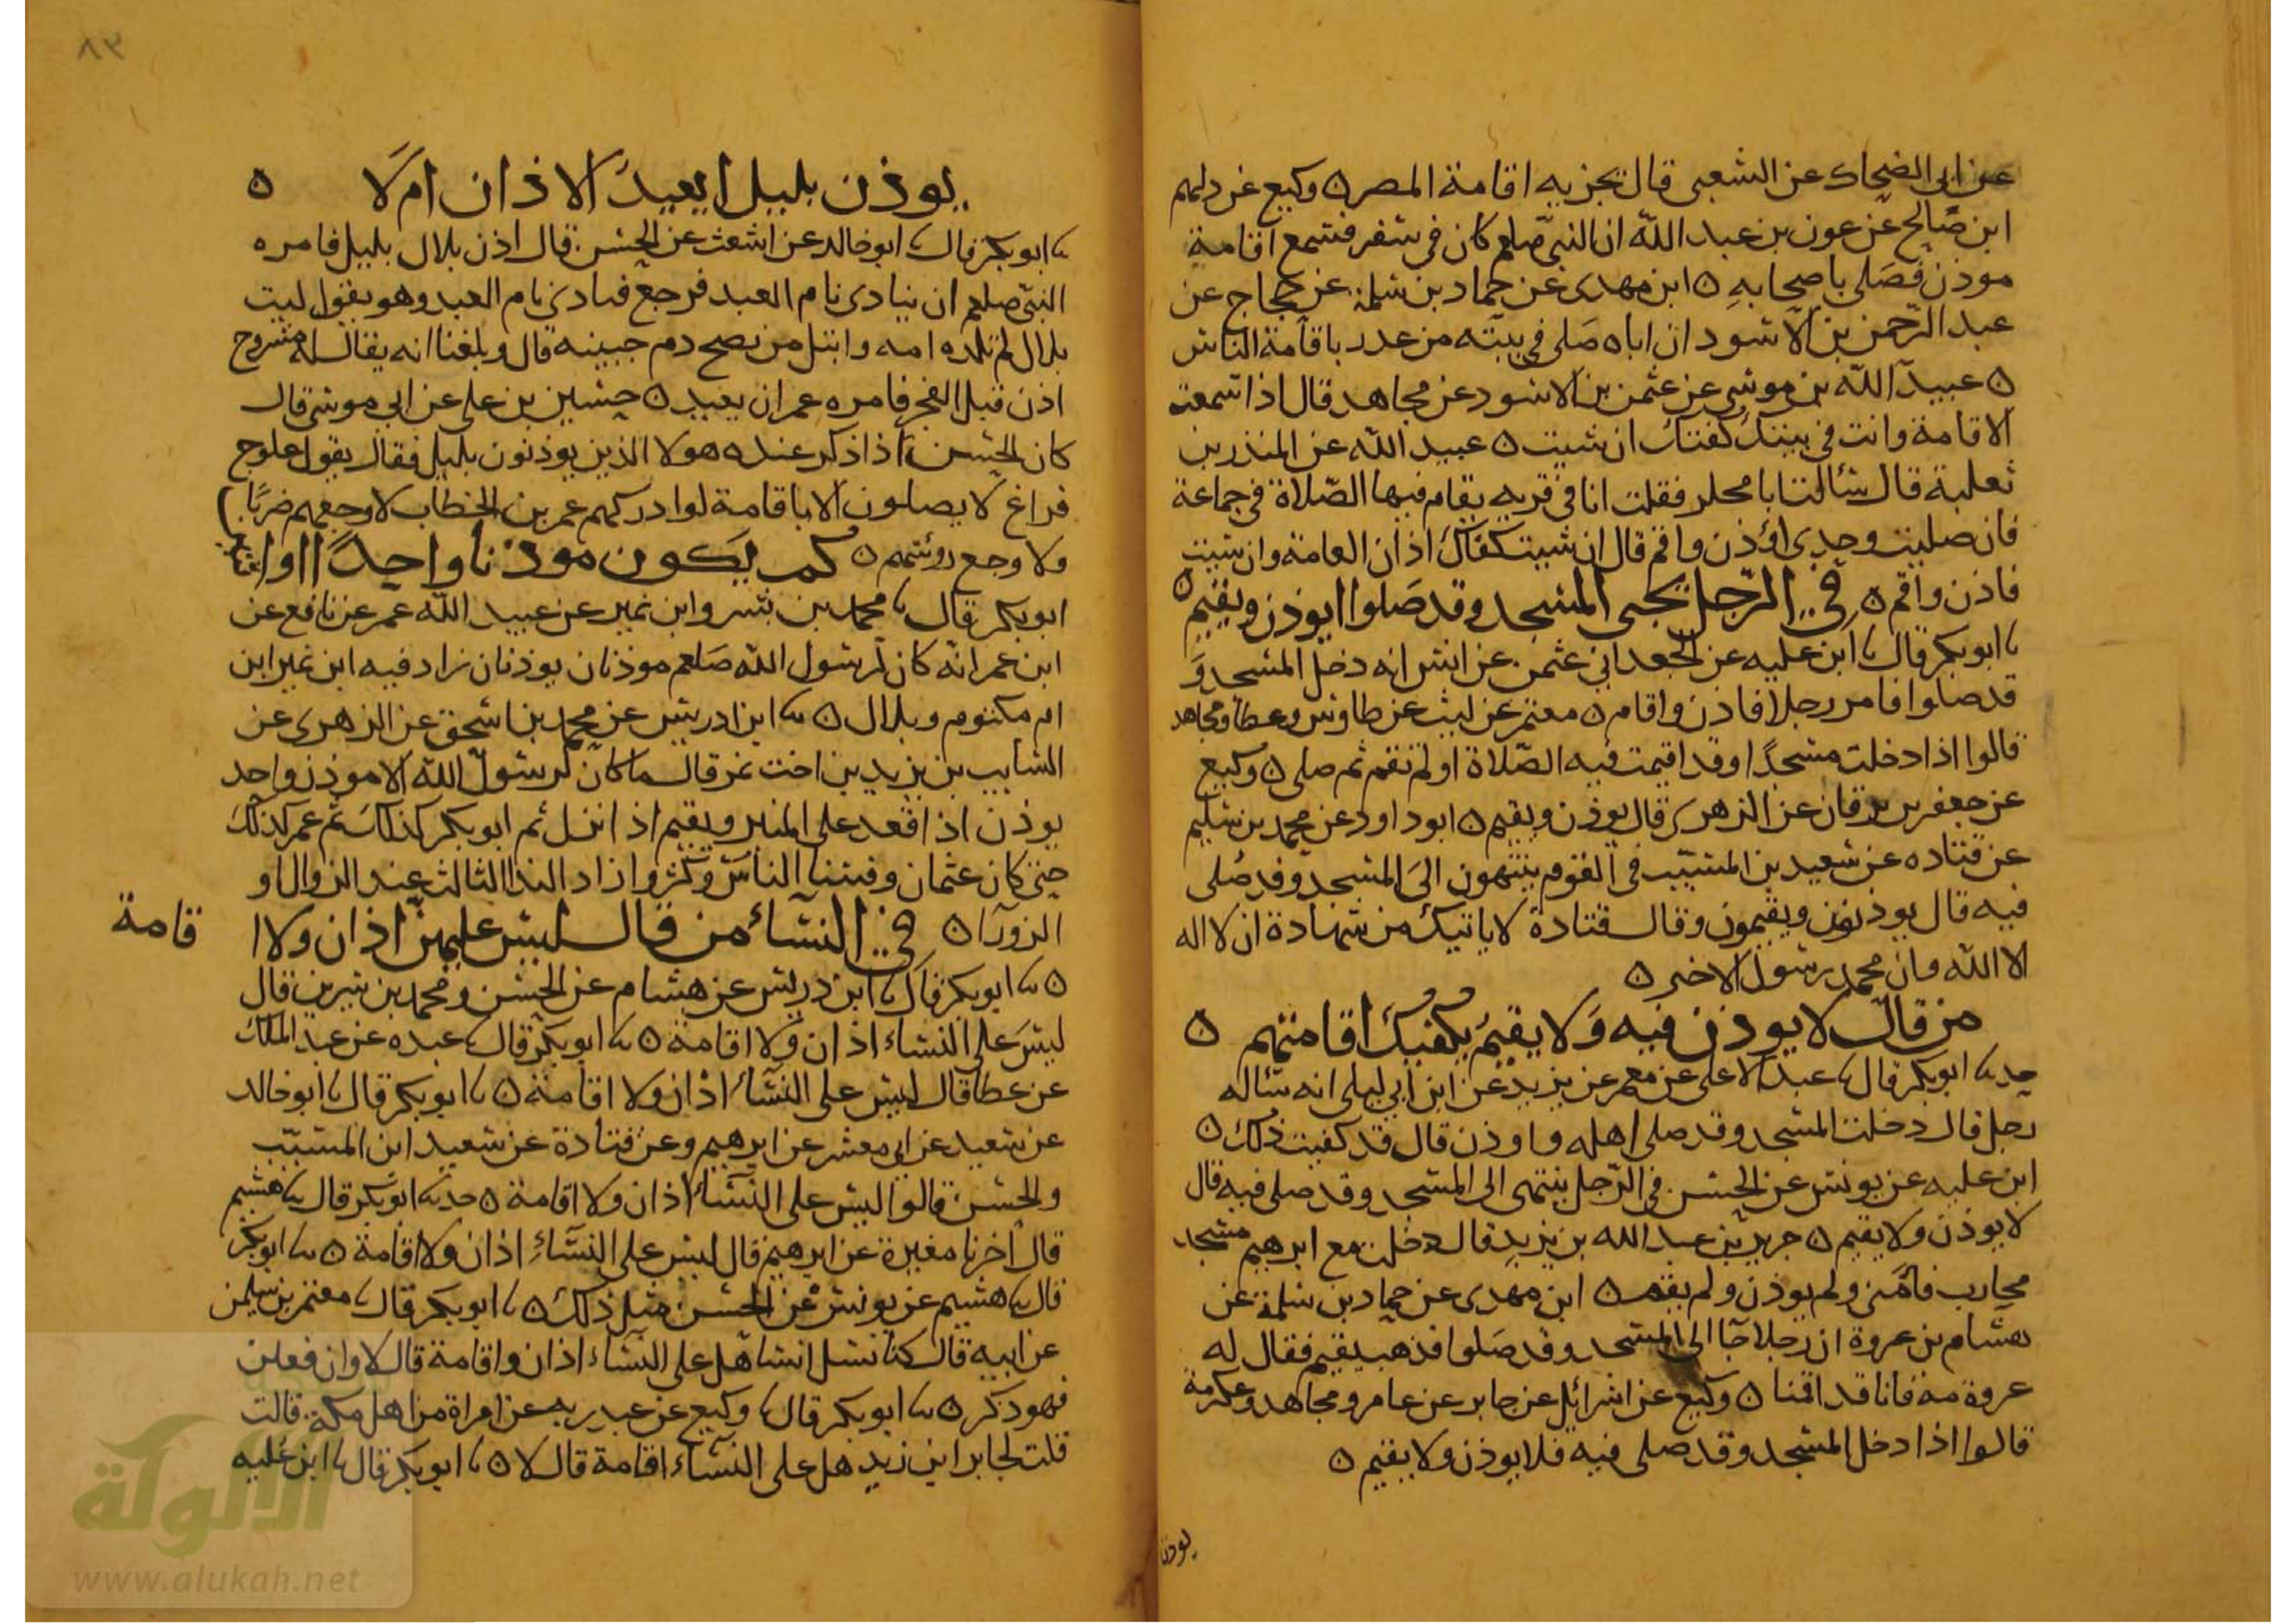 عن ابى الضحاك عن الشعبى قال يجزيه اقامة المصر ه وكيع عن دلهم
ابن صالح عن عون بن عبد الله ان النبى صلعم كان فى سفر فسمع اقامة
موذن فصلى باصحابه ه ابن مهدى عن حماد بن سلمة عن حجاج عن
عبد الرحمن بن الاسود ان اباه صلى فى بيته من عدد باقامة الناس
ه عبيد الله بن موسى عن عثمن بن الاسود عن مجاهد قال اذا سمعت
الاقامة وانت فى بيتك كفتك ان شيت ه عبيد الله عن المنذر بن
ثعلبة قال سالت ابا مجلز فقلت انا فى قريه يقام فيها الصلاة فى جماعة
فان صليت وحدى اؤذن واقم قال ان شيت كفاك اذان العامة وان شيت
فاذن واقم ه فى الرجل يجى المسجد وقد صلوا ايوذن ويقيم ه
نا ابو بكر قال نا ابن عليه عن الجعد ابى عثمن عن انس انه دخل المسجد و
قد صلوا فامر رجلا فاذن واقام ه معتمر عن ليث عن طاوس وعطا ومجاهد
قالوا اذا دخلت مسجدا وقد اقيمت فيه الصلاة او لم تقم ثم صلى ه وكيع
عن جعفر بن برقان عن الزهرى قال يوذن ويقيم ه ابو داود عن محمد بن سليم
عن قتاده عن سعيد بن المسيب فى القوم ينتهون الى المسجد وقد صلى
فيه قال يوذنون ويقيمون وقال قتادة لا ياتيك من شهادة ان لا اله
الا الله وان محمد رسول الا خير ه
من قال لا يوذن فيه ولا يقيم يكفيك اقامتهم ه
حد نا ابو بكر قال نا عبد الاعلى عن معمر عن يزيد عن ابن ابى ليلى انه ساله
رجل قال دخلت المسجد وقد صلى اهله واوذن قال قد كفيت ذلك ه
ابن عليه عن يونس عن الحسن فى الرجل ينتهى الى المسجد وقد صلى فيه قال
لا يوذن ولا يقيم ه جرير بن عبد الله بن يزيد قال دخلت مع ابرهيم مسجد
محارب فامنى ولم يوذن ولم يقم ه ابن مهدى عن حماد بن سلمة عن
هشام بن عروة ان رجلا جا الى المسجد وقد صلوا فذهب يقيم فقال له
عروة مه فانا قد اقمنا ه وكيع عن اسرائل عن جابر عن عامر ومجاهد وعكرمة
قالوا اذا دخل المسجد وقد صلى فيه فلا يوذن ولا يقيم ه
يوذن
٨٣
يوذن بليل ايعيد الاذان ام لا ه
نا ابو بكر قال نا ابو خالد عن اشعث عن الحسن قال اذن بلال بليل فامره
النبى صلعم ان ينادى نام العبد فرجع فنادى نام العبد وهو يقول ليت
بلال لم تلده امه وابتل من نضح دم جبينه قال وبلغنا انه يقال له مسروح
اذن قبل الفجر فامره عمر ان يعيد ه حسين بن على عن ابى موسى قال
كان الحسن اذا ذكر عنده هولا الذين يوذنون بليل فقال يقول علوج
فراغ لا يصلون الا باقامة لو ادركهم عمر بن الخطاب لاوجعهم ضربا
ولاوجع روسهم ه كم يكون موذنا واحدا او اثنا
ابو بكر قال نا محمد بن بشر وابن نمير عن عبيد الله عمر عن نافع عن
ابن عمر انه كان لرسول الله صلعم موذنان يوذنان زاد فيه ابن نمير ابن
ام مكتوم وبلال ه نا ابن ادريس عن محمد بن اسحق عن الزهرى عن
السايب بن يزيد بن اخت نمر قال ما كان لرسول الله الا موذن واحد
يوذن اذا قعد على المنبر ويقيم اذا نزل ثم ابو بكر كذلك ثم عمر كذلك
حتى كان عثمان وفشا الناس وكثروا زاد الندا الثالث عند الزوال او
الزورا ه فى النساء من قال ليس عليهن اذان ولا ا قامة
ه نا ابو بكر قال نا ابن دريس عن هشام عن الحسن ومحمد بن سيرين قال
ليس على النساء اذان ولا اقامة ه نا ابو بكر قال نا عبده عن عبد الملك
عن عطا قال ليس على النساء اذان ولا اقامة ه نا ابو بكر قال نا ابو خالد
عن سعيد عن ابى معشر عن ابرهيم وعن قتادة عن سعيد ابن المسيب
والحسن قالوا ليس على النساء اذان ولا اقامة ه حد نا ابو بكر قال نا هشيم
قال اخبرنا مغيرة عن ابرهيم قال ليس على النساء اذان ولا اقامة ه نا ابو بكر
قال نا هشيم عن يونس عن الحسن مثل ذلك ه نا ابو بكر قال نا معتمر بن سليمن
عن ابيه قال كنا نسل انسا هل على النساء اذان واقامة قال لا وان فعلن
فهو ذكر ه نا ابو بكر قال نا وكيع عن عبد ربه عن امراة من اهل مكة قالت
قلت لجابر ابن زيد هل على النساء اقامة قال لا ه نا ابو بكر قال نا ابن عليه
الألوكة
www.alukah.net